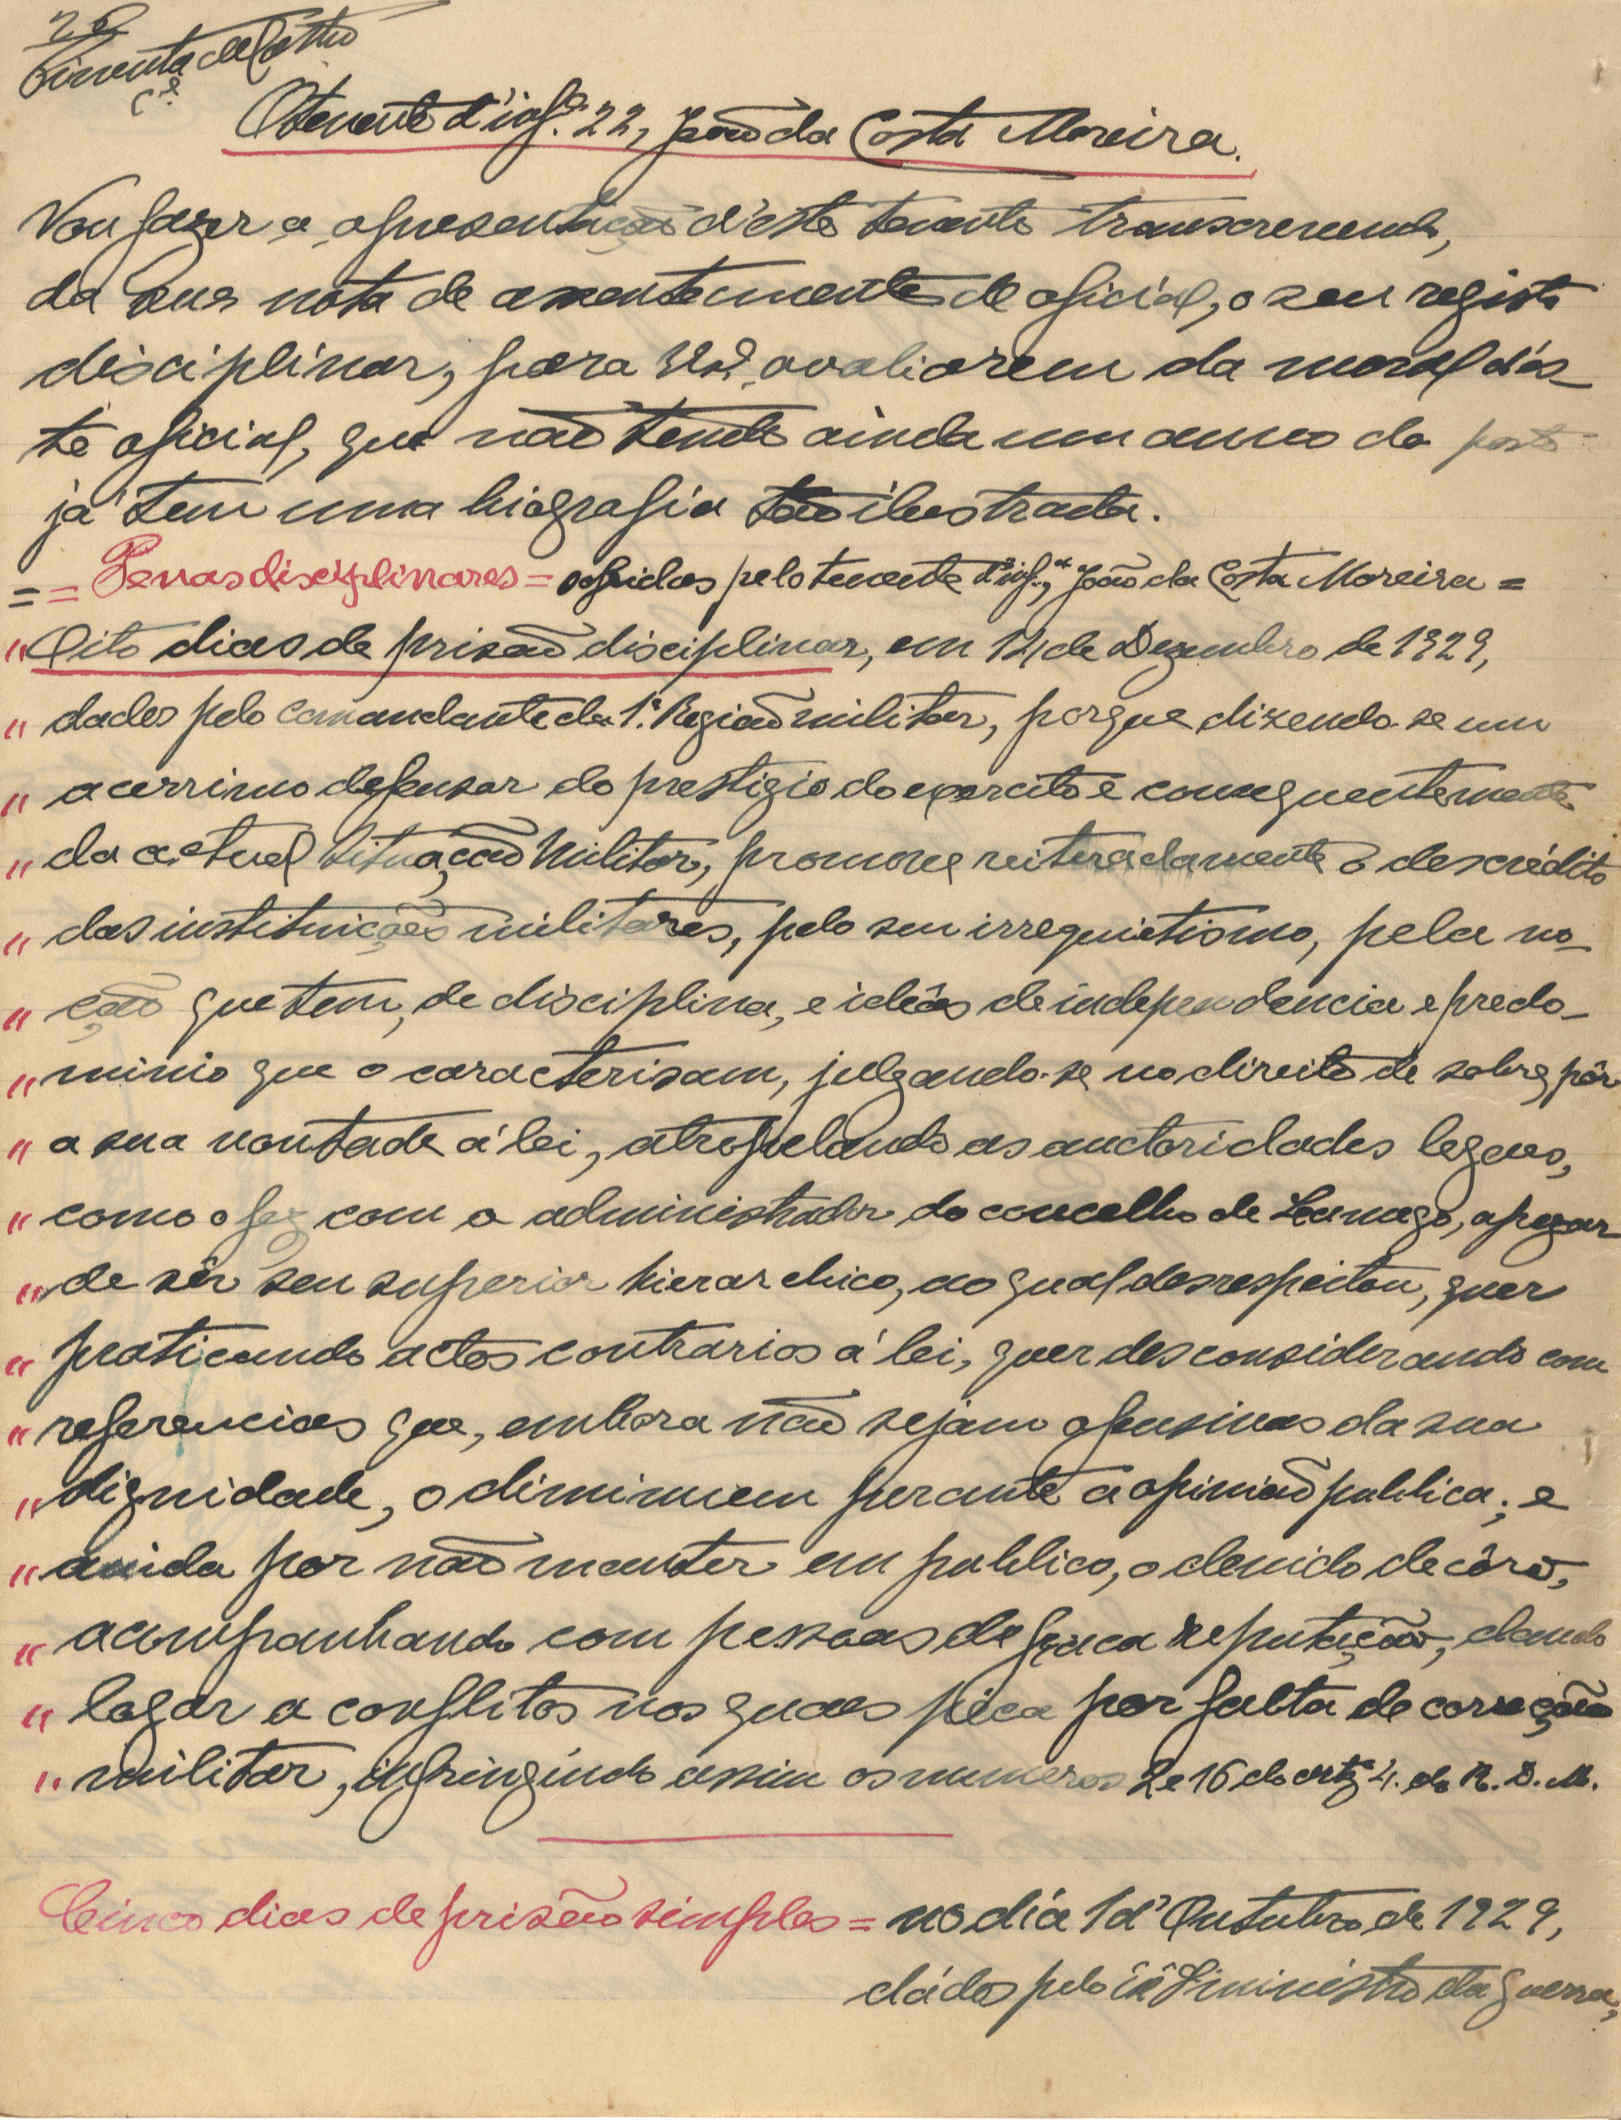 20
Pimenta de Castro
C.el
O tenente d'inf.ª 22, João da Costa Moreira.
Vou fazer a apresentação d'este tenente transcrevendo,
da sua nota de assentamentos de oficial, o seu registo
disciplinar, para avaliarem da moral dês-
te oficial, que não tendo ainda um anno do posto
já tem uma biografia tão ilustrada.
= = Penas disciplinares = sofridas pelo tenente d'inf.ª, João da Costa Moreira =
" Oito dias de prisão disciplinar, em 14 de Dezembro de 1929,
" dados pelo comandante da 1.ª Região militar, porque dizendo-se um
" acerrimo defensor do prestigio do exercito e conseguentemente
" da actual Situação Militar, promove reiteradamente o descrédito
" das instituições militares, pelo seu irrequietismo, pela no-
" ção que tem, de disciplina, e ideâs de independencia e predo-
" minio que o caracterisam, julgando-se no direito de sobrepôr
" a sua vontade á lei, atropelando as auctoridades legaes,
" como o fez com o administrador do concelho de Lamego, apezar
" de sêr seu superior hierarchico, ao qual desrespeitou, quer
" praticando actos contrarios á lei, quer desconsiderando com
" referencias que, embora não sejam ofensivas da sua
" dignidade, o diminuem perante a opinião publica; e
" ainda por não manter em publico, o devido decôro,
" acompanhando com pessoas de fraca reputação, dando
" logar a conflitos nos quaes péca por falta de correção
" militar, infringindo assim os numeros 2 e 16 do artg.º 4. do R. D. M.
Cinco dias de prisão simples = no día 1 d'Outubro de 1929,
dádos pelo Ministro da guerra,